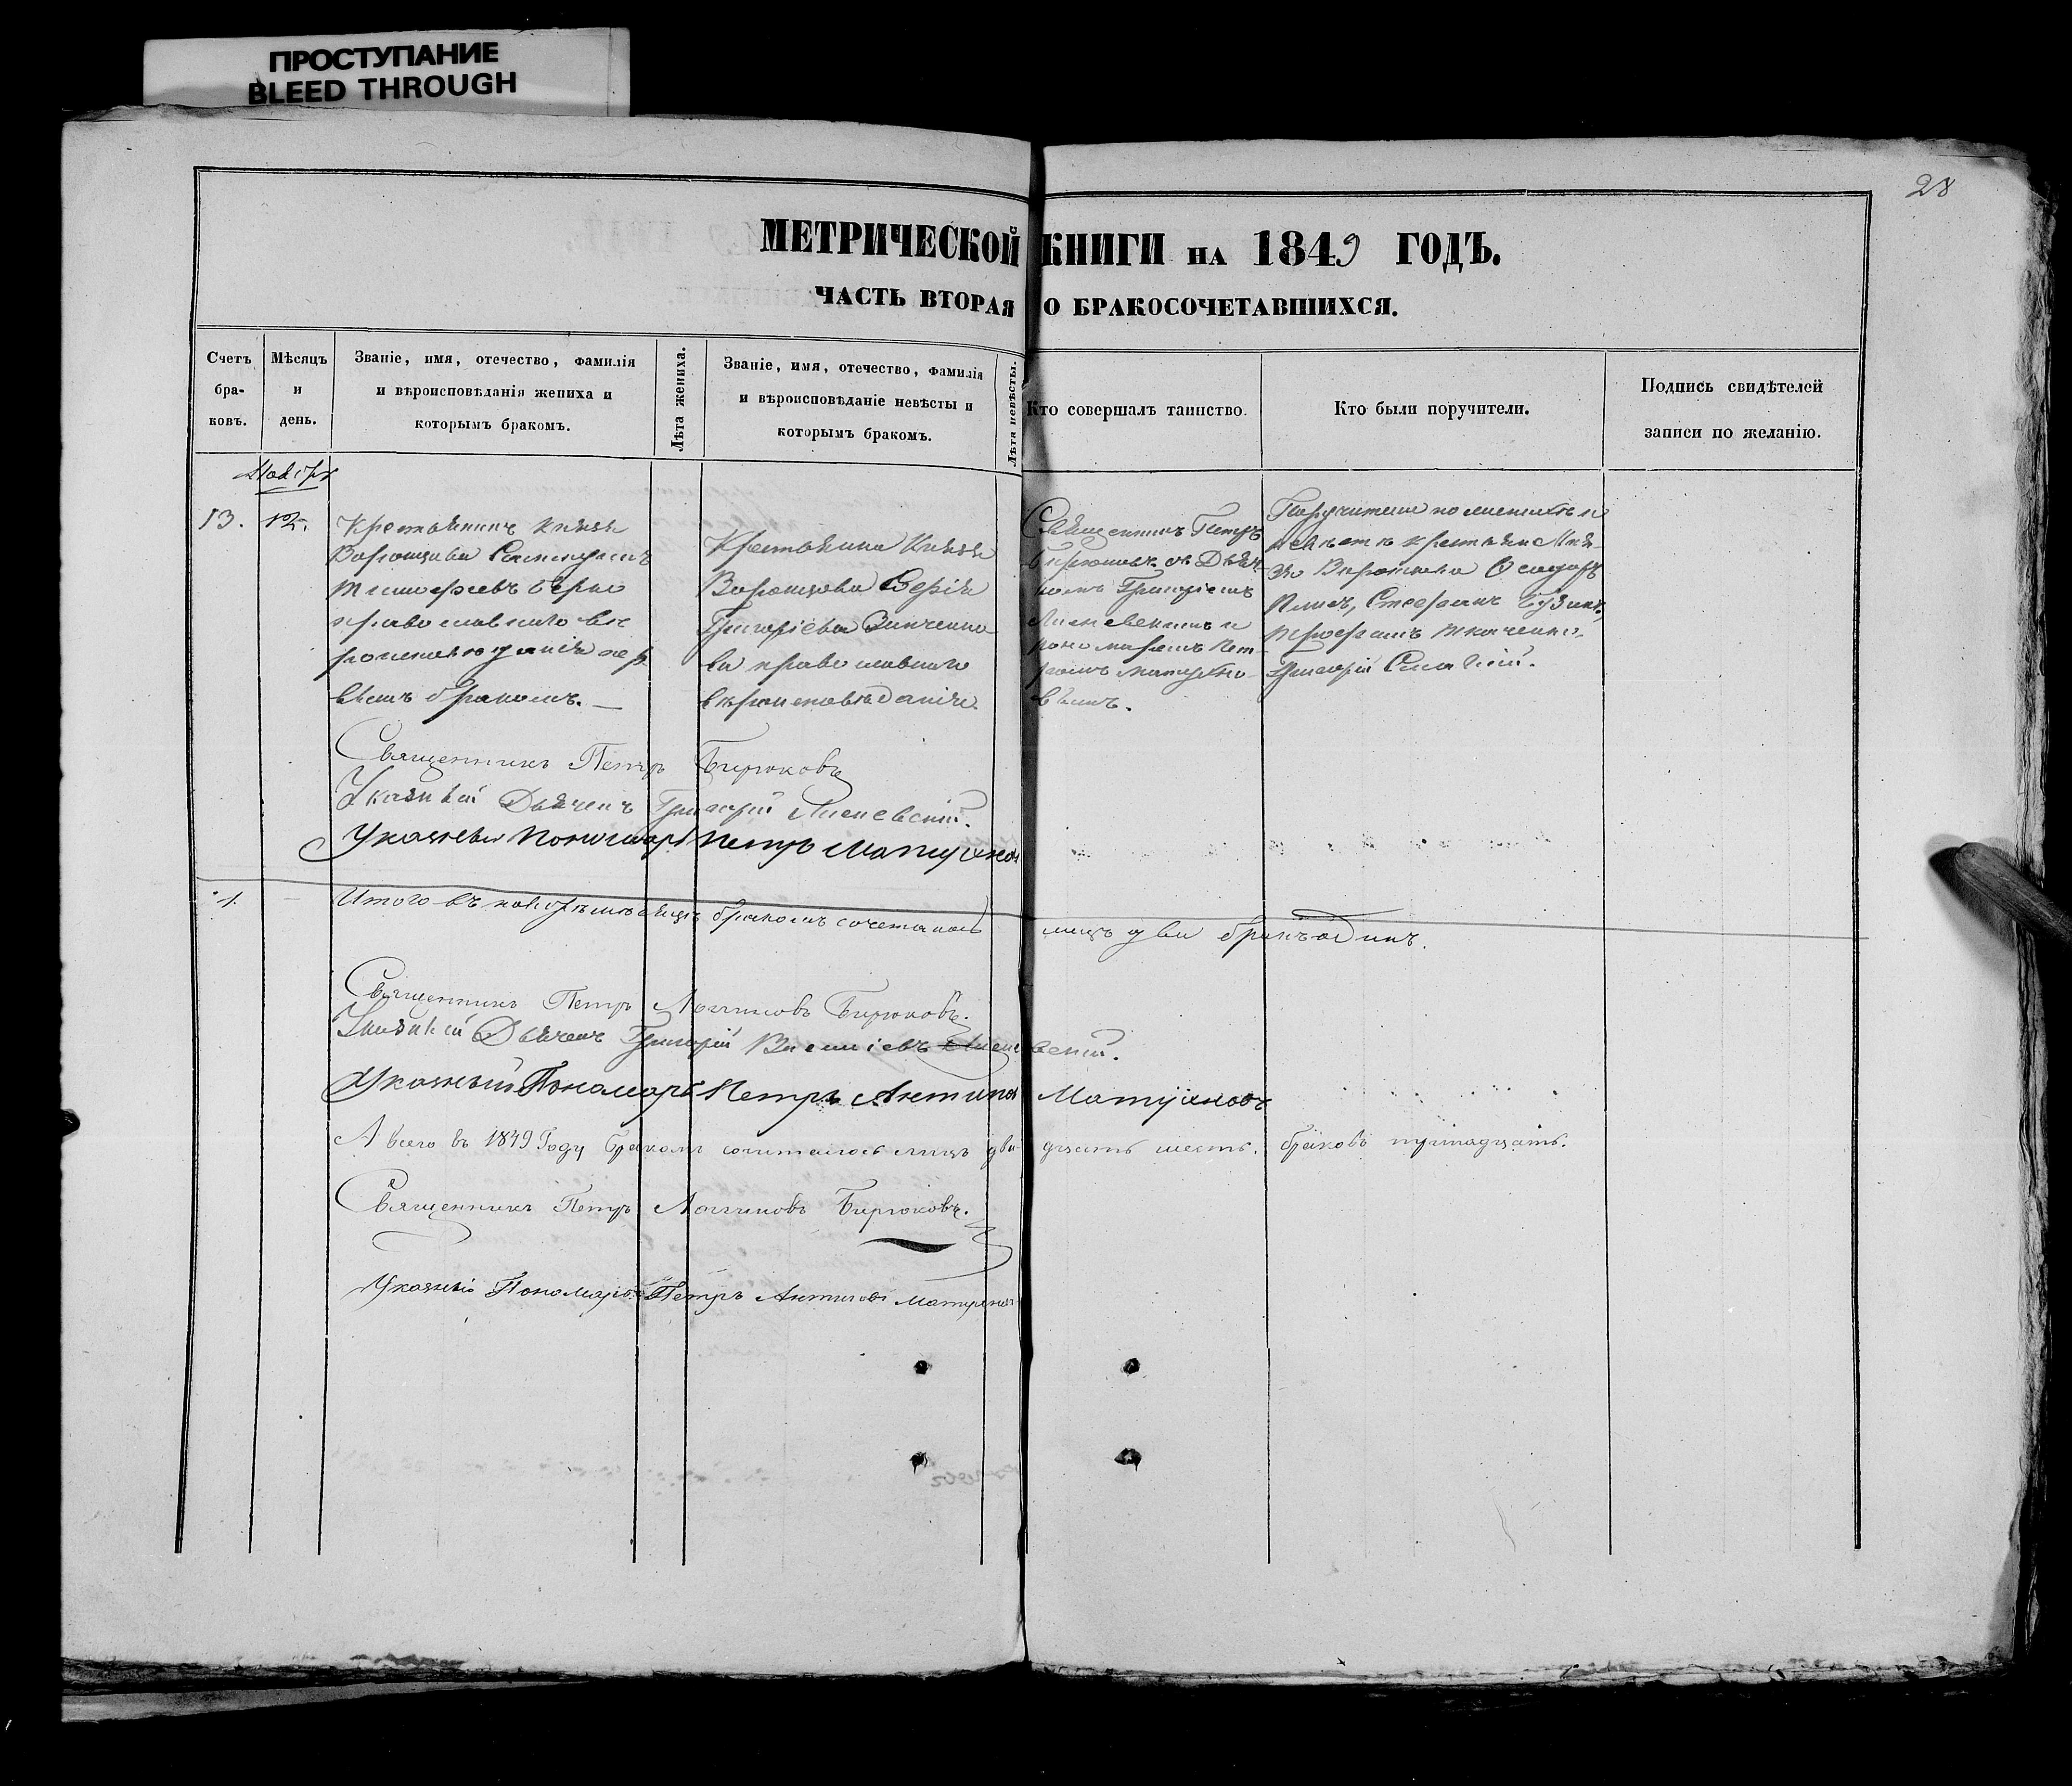 ПРОСТУПАНИЕ
BLEED THROUGH
28
МЕТРИЧЕСКОЙ КНИГИ НА 1849 ГОДЪ.
ЧАСТЬ ВТОРАЯ О БРАКОСОЧЕТАВШИХСЯ.
Счетъ браковъ.
Мѣсяцъ и день.
Званіе, имя, отечество, фамилія
и вѣроисповѣданія жениха и
которымъ бракомъ.
Лѣта жениха.
Званіе, имя, отечество, фамилія
и вѣроисповѣданіе невѣсты и
которымъ бракомъ.
Лѣта невѣсты.
Кто совершалъ таинство.
Кто были поручители.
Подпись свидѣтелей
записи по желанію.
Ноября
13. 12.
Крестьянинъ Князя
Воронцова
Тимофеевъ
православнаго вѣ
роисповѣданія пер
вымъ бракомъ.
Крестьянка Князя
Воронцова
Григоріева Зинченко
ва православнаго
вѣроисповѣданія
Священникъ Петръ
Бирюковъ съ Дьяч
комъ Григоріемъ
и
пономаремъ Пет
ромъ Матушно
вымъ.
Поручители по женихѣ и
невѣстѣ крестьяне Кня
зя Воронцова Феодоръ
Стефанъ
Трофимъ Ткаченко
Григорій
Священникъ Петръ Бирюковъ
Указный Дьячекъ Григорій
Указный Пономарь Петръ
1. Итого въ ноябрѣ мѣсяцѣ бракомъ сочеталось лицъ два бракъ одинъ.
Священникъ Петръ Логгиновъ Бирюковъ.
Указный Дьячекъ Григорій
Указный Пономарь Петръ Антиповъ
А всего въ 1849 Году бракомъ сочеталось лицъ двадцать шесть. браковъ тринадцать.
Священникъ Петръ Логгиновъ Бирюковъ.
Указный Пономарь Петръ Антиповъ